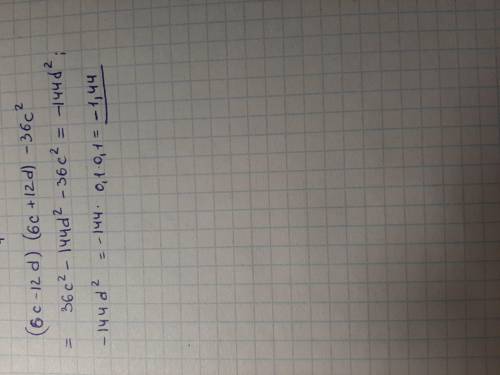 (6c-12d) (6c+12d) -36c²
= 36c² - 144d² - 36c² = -144d² ;
-144d² = -144 · 0,1 · 0,1 = -1,44